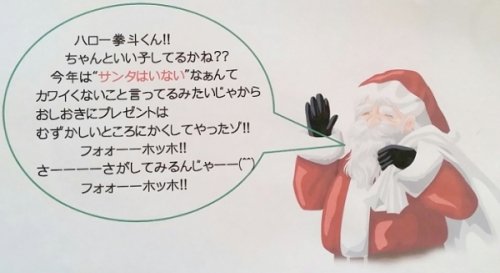 ハロー拳斗くん!!
ちゃんといい予してるかね??
今年は“サンタはいない”なぁんて
カワイくないこと言ってるみたいじゃから
おしおきにプレゼントは
むずかしいところにかくしてやったゾ!!
フォォーーホッホ!!
さーーーーさがしてみるんじゃーー(^^)
フォォーーホッホ!!